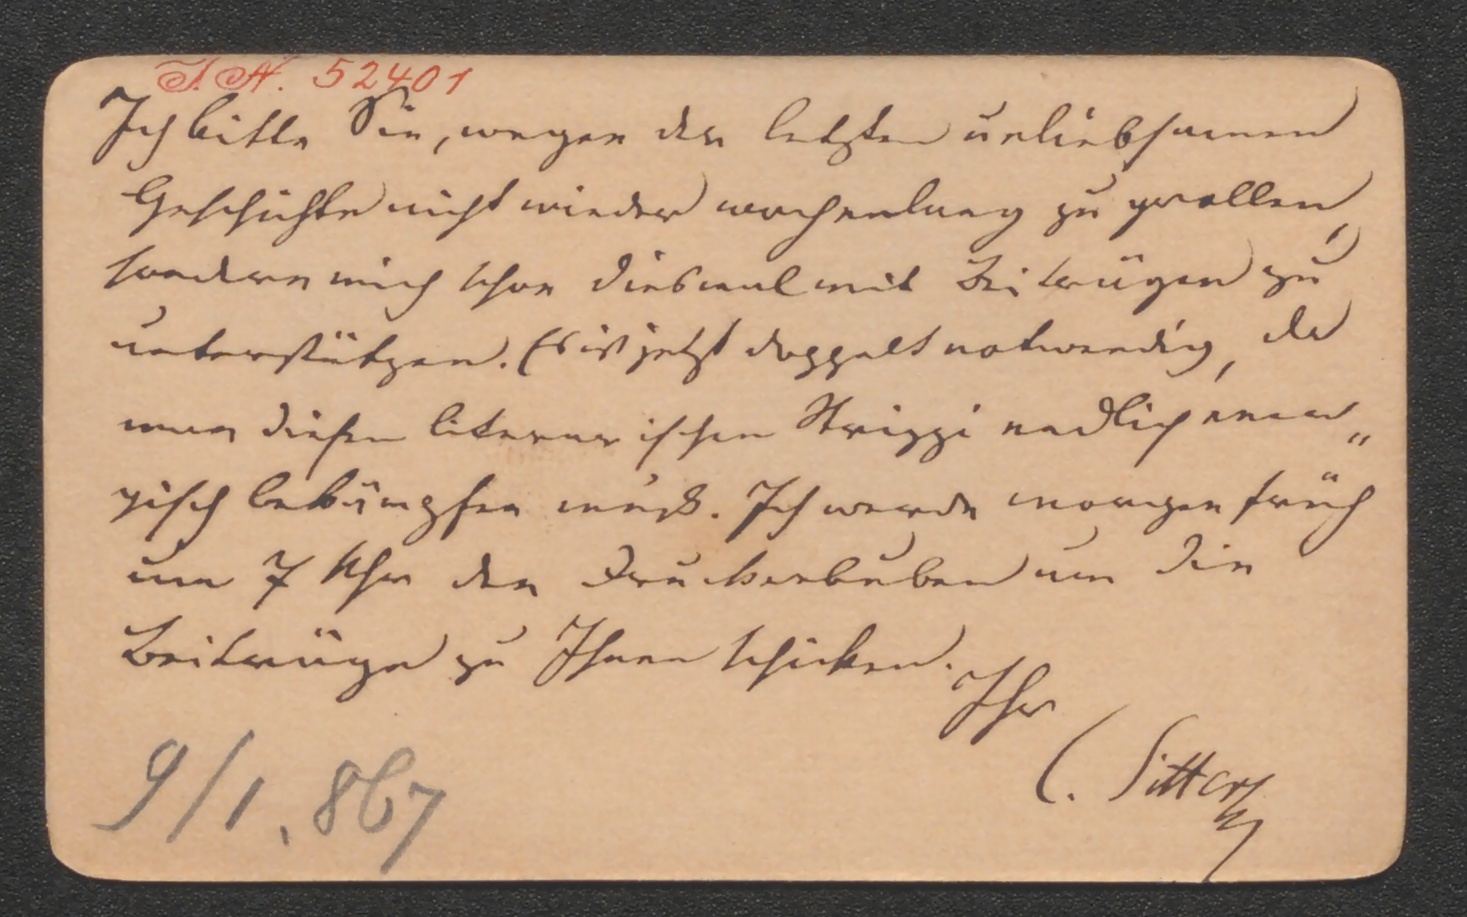 I. N. 52401
Ich bitte Sie, wegen der letzten unliebsamen
Geschichte nicht wieder wochenlang zu grollen,
sondern mich schon diesmal mit Beiträgen zu
unterstützen. Es ist jetzt doppelt notwendig, da
man diesen literarischen Strizzi endlich ener„
gisch bekämpfen muß. Ich werde morgen früh
um 7 Uhr den Druckerbuben um die
Beiträge zu Ihnen schicken.
Ihr
C. Sitter
9/1. 867